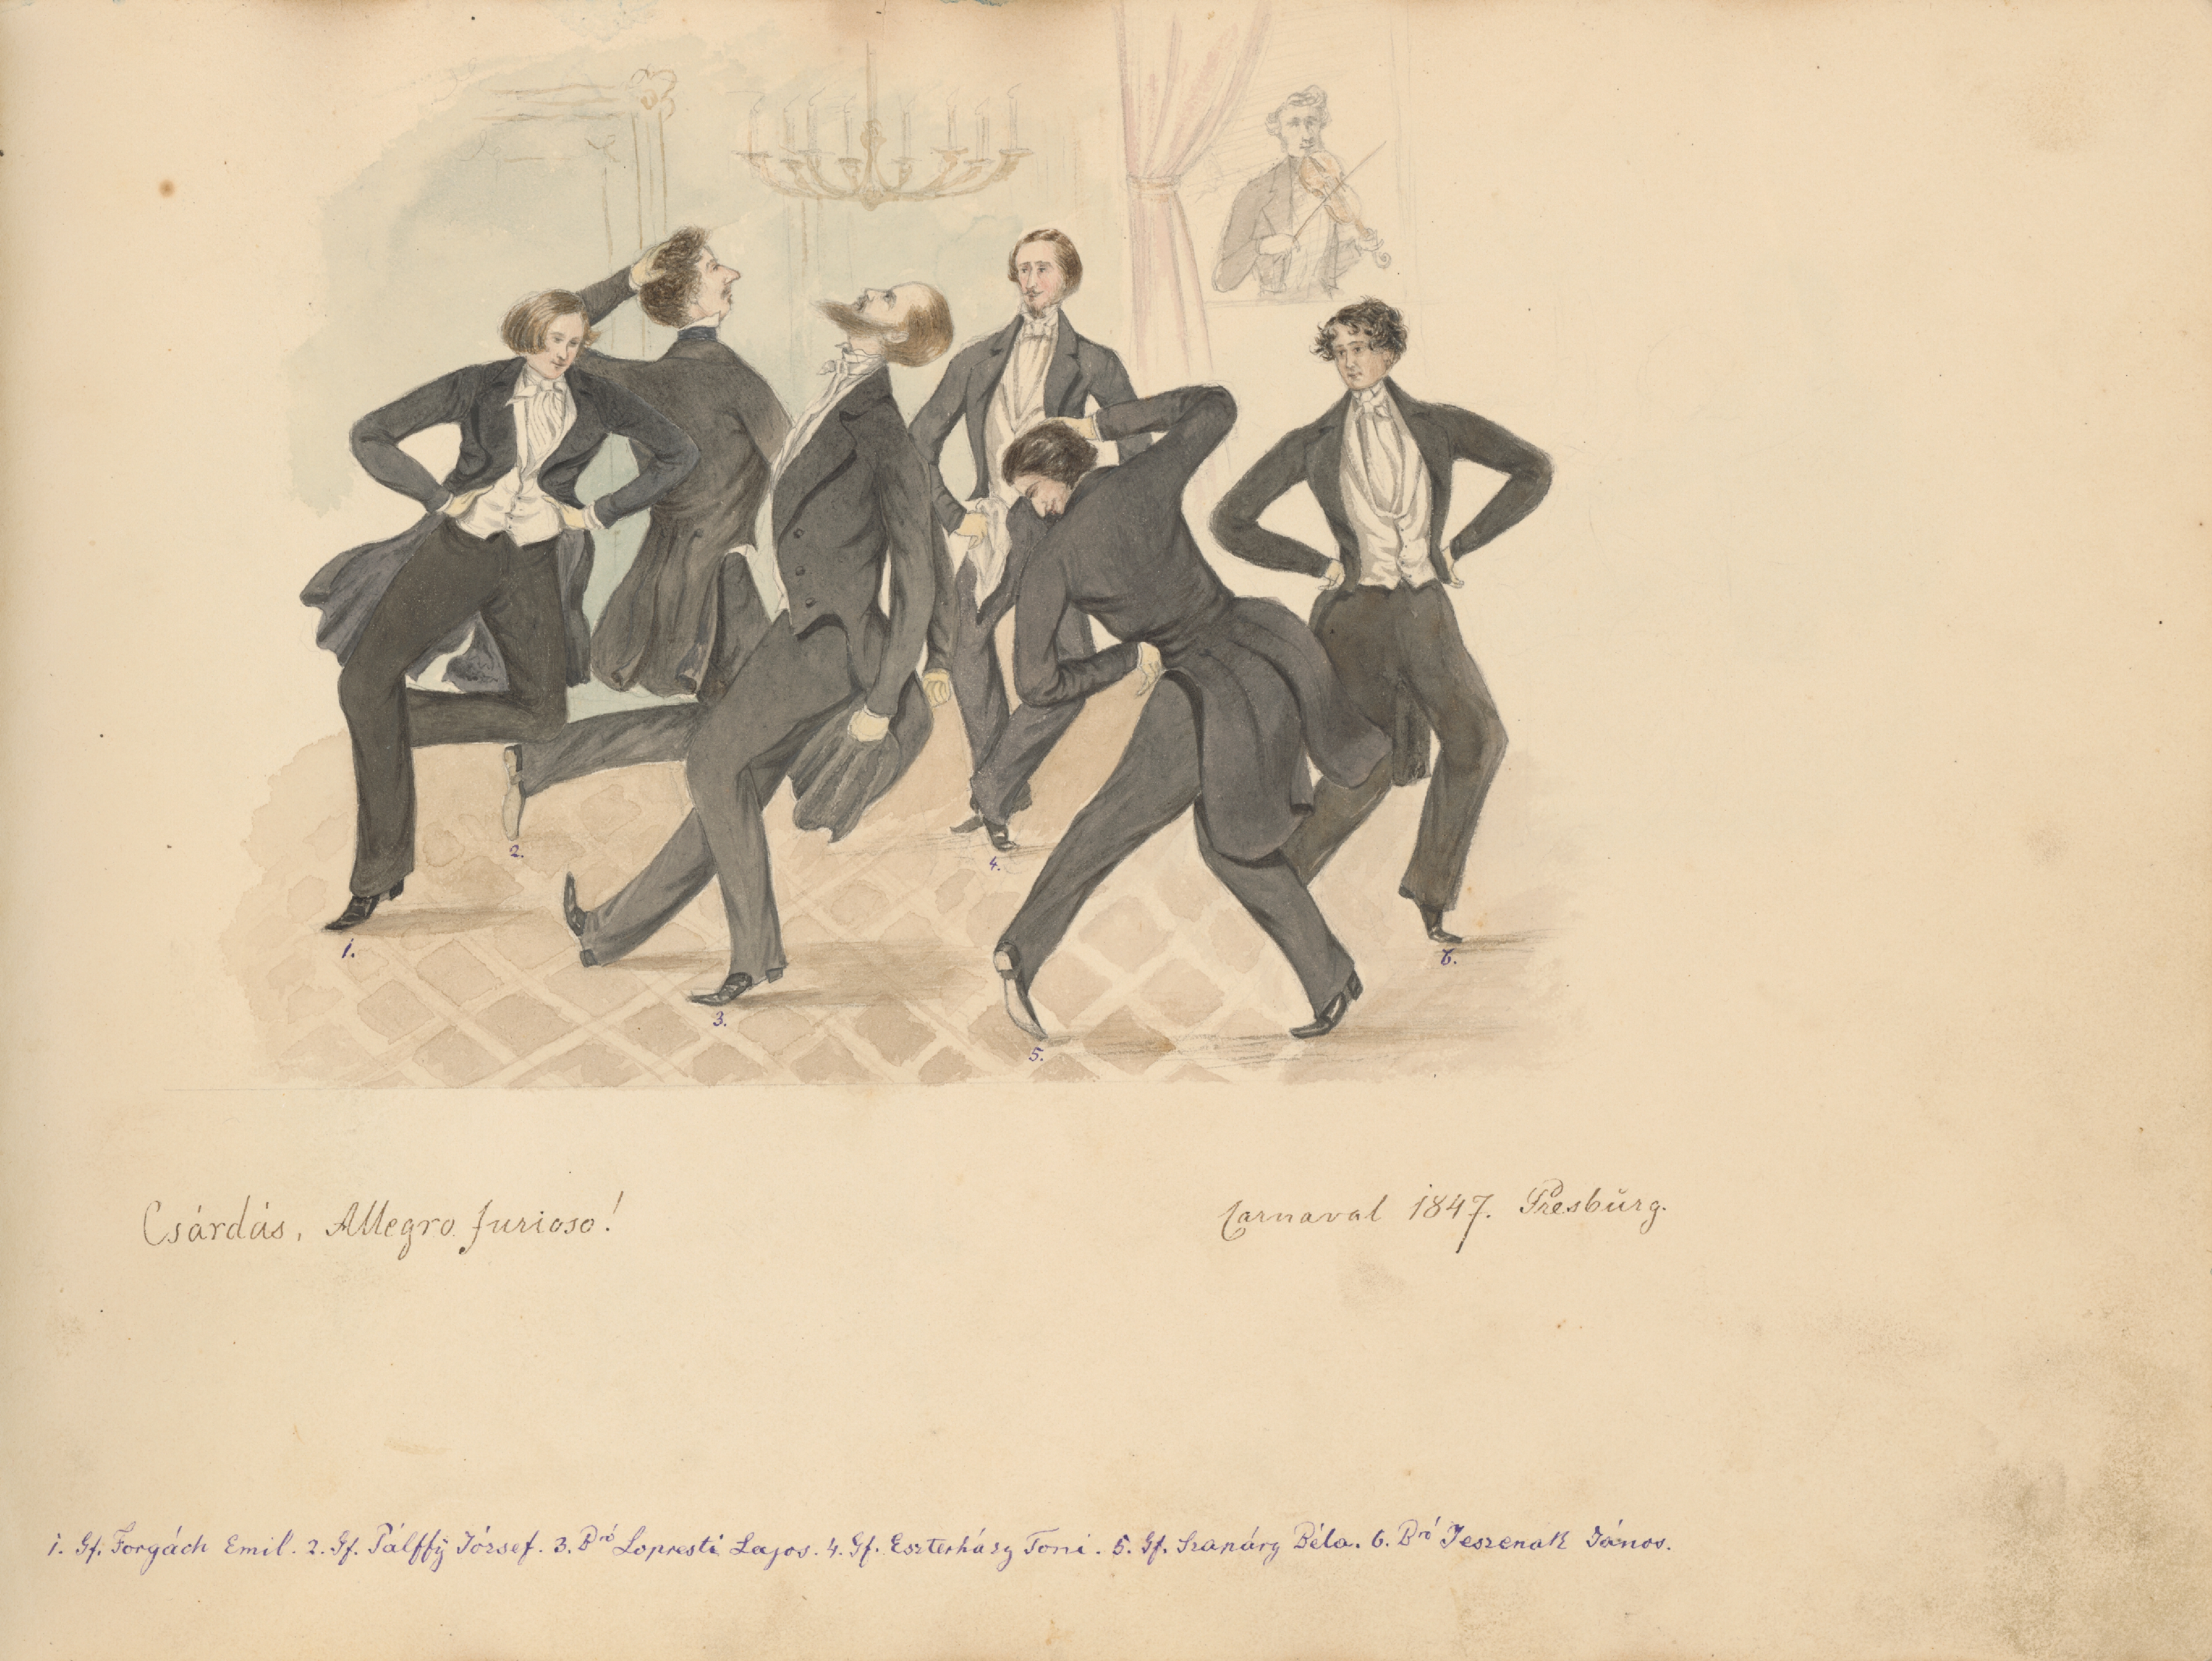 1.
2.
3.
4.
5.
6.
Csárdás, Allegro furioso!
Carnaval 1847. Presbŭrg.
1. Gf. Forgách Emil. 2. Gf. Pálffÿ József. 3. Bró Lopresti Lajos. 4. Gf. Eszterházy Toni. 5. Gf. Szapáry Béla. 6. Bró Jeszenak János.